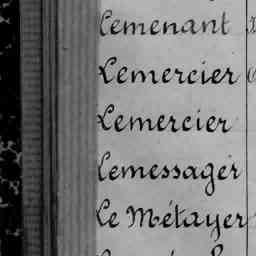 Lemenant
Lemercier
Lemercier
Lemessager
Le Métayer